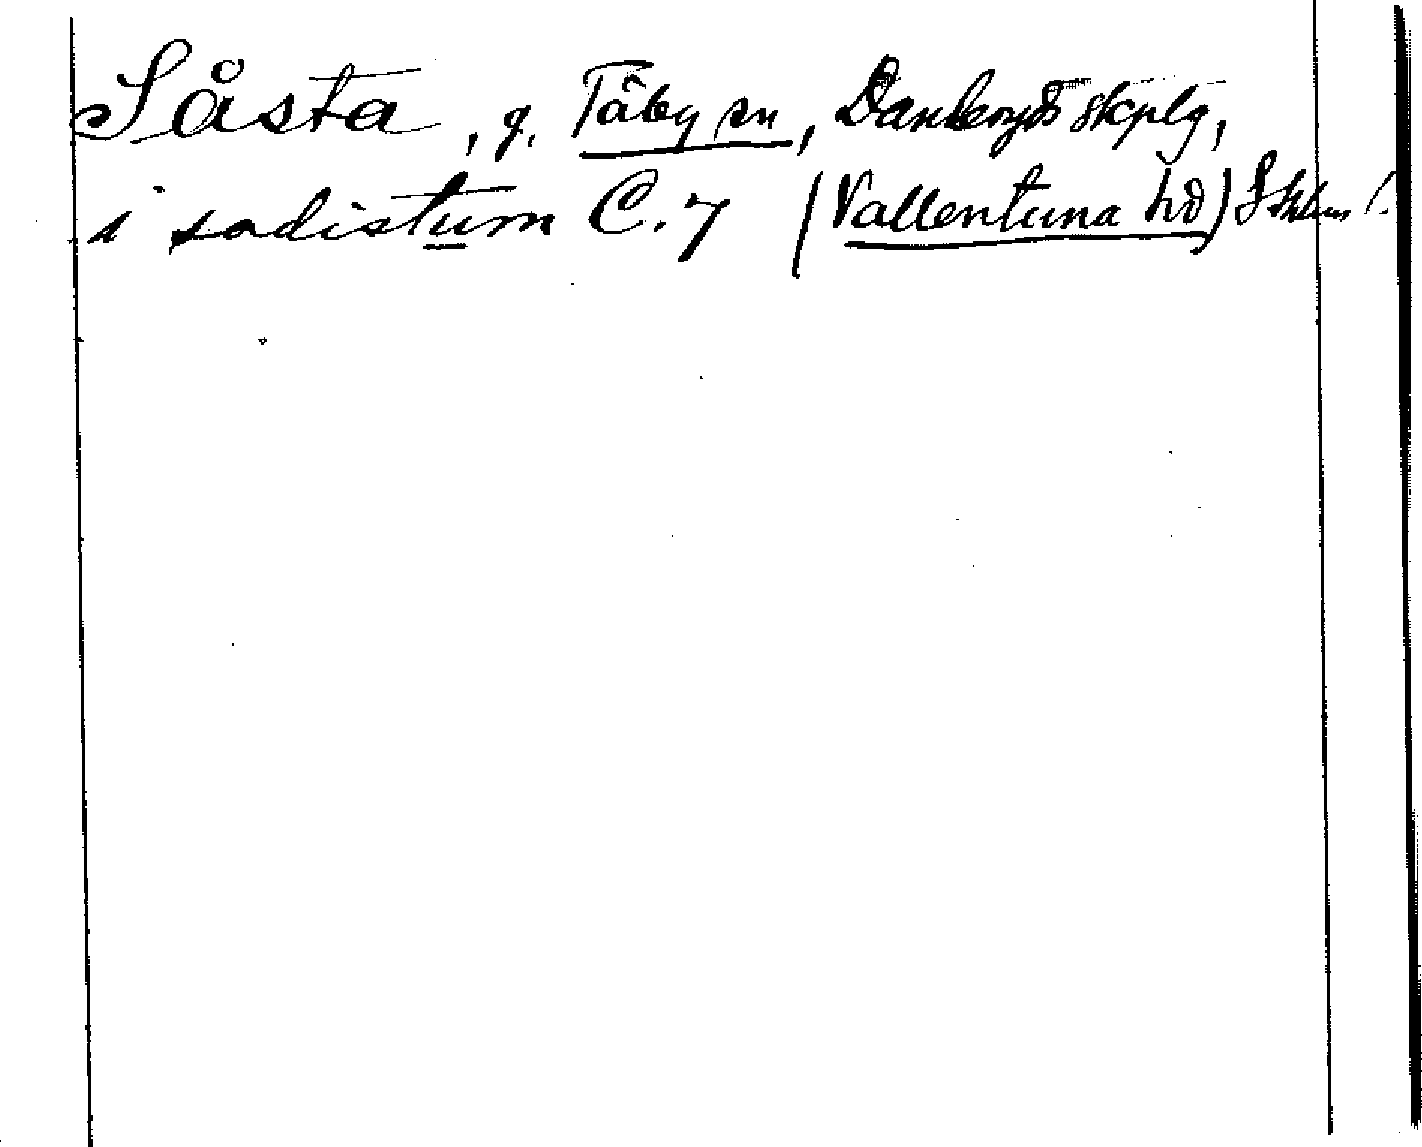 Såsta, g. Täby sn, Danderyds skplg,
i sadistum C. 7 (Vallentuna hd) Sthlms l.